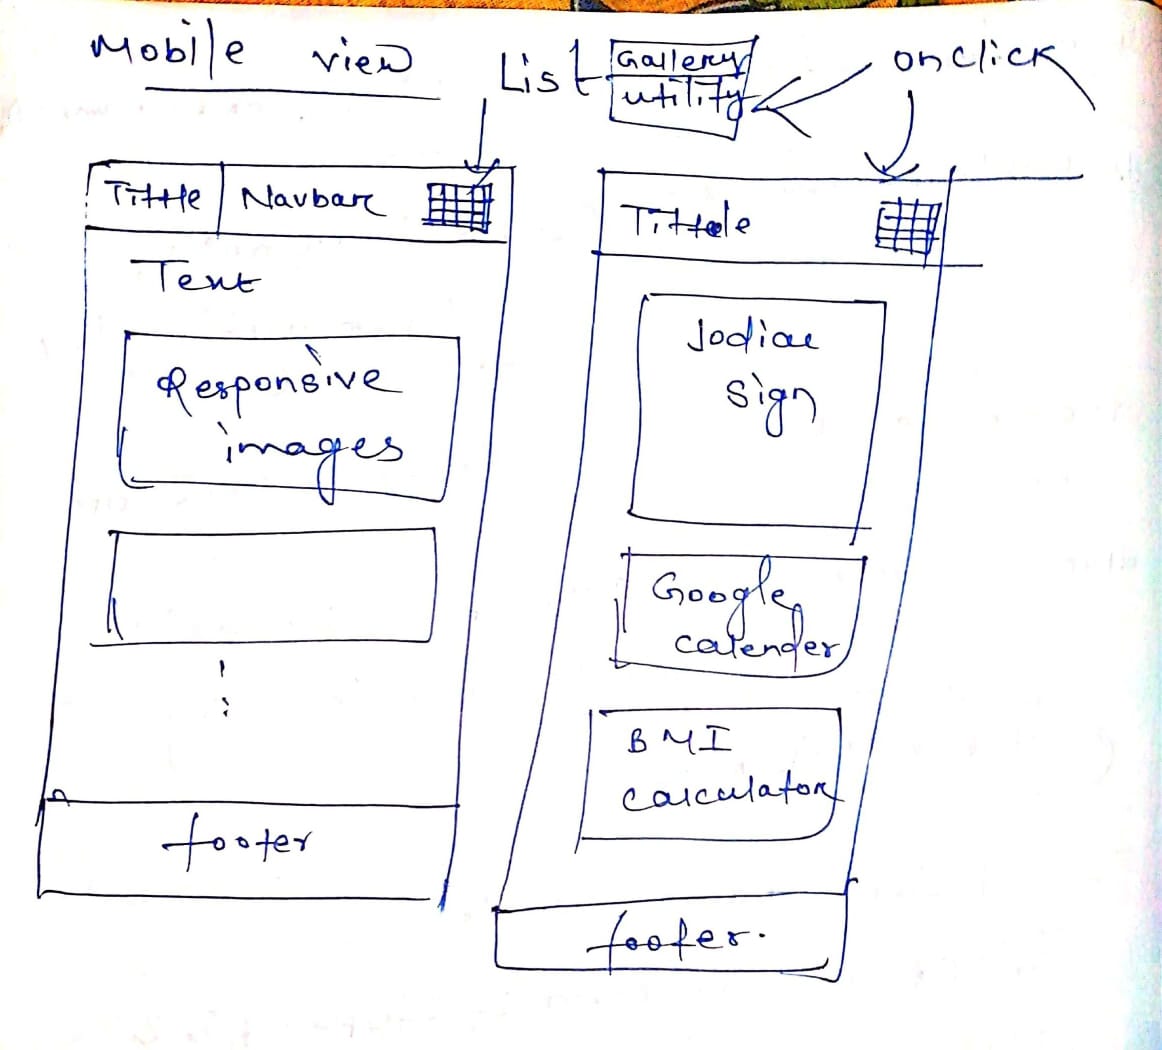 Mobile view
List
Gallery
utility
onclick
Tittle
Navbar
Text
Responsive
images
footer
Tittele
Jodiac
sign
Google
calender
BMI
calculator
footer.